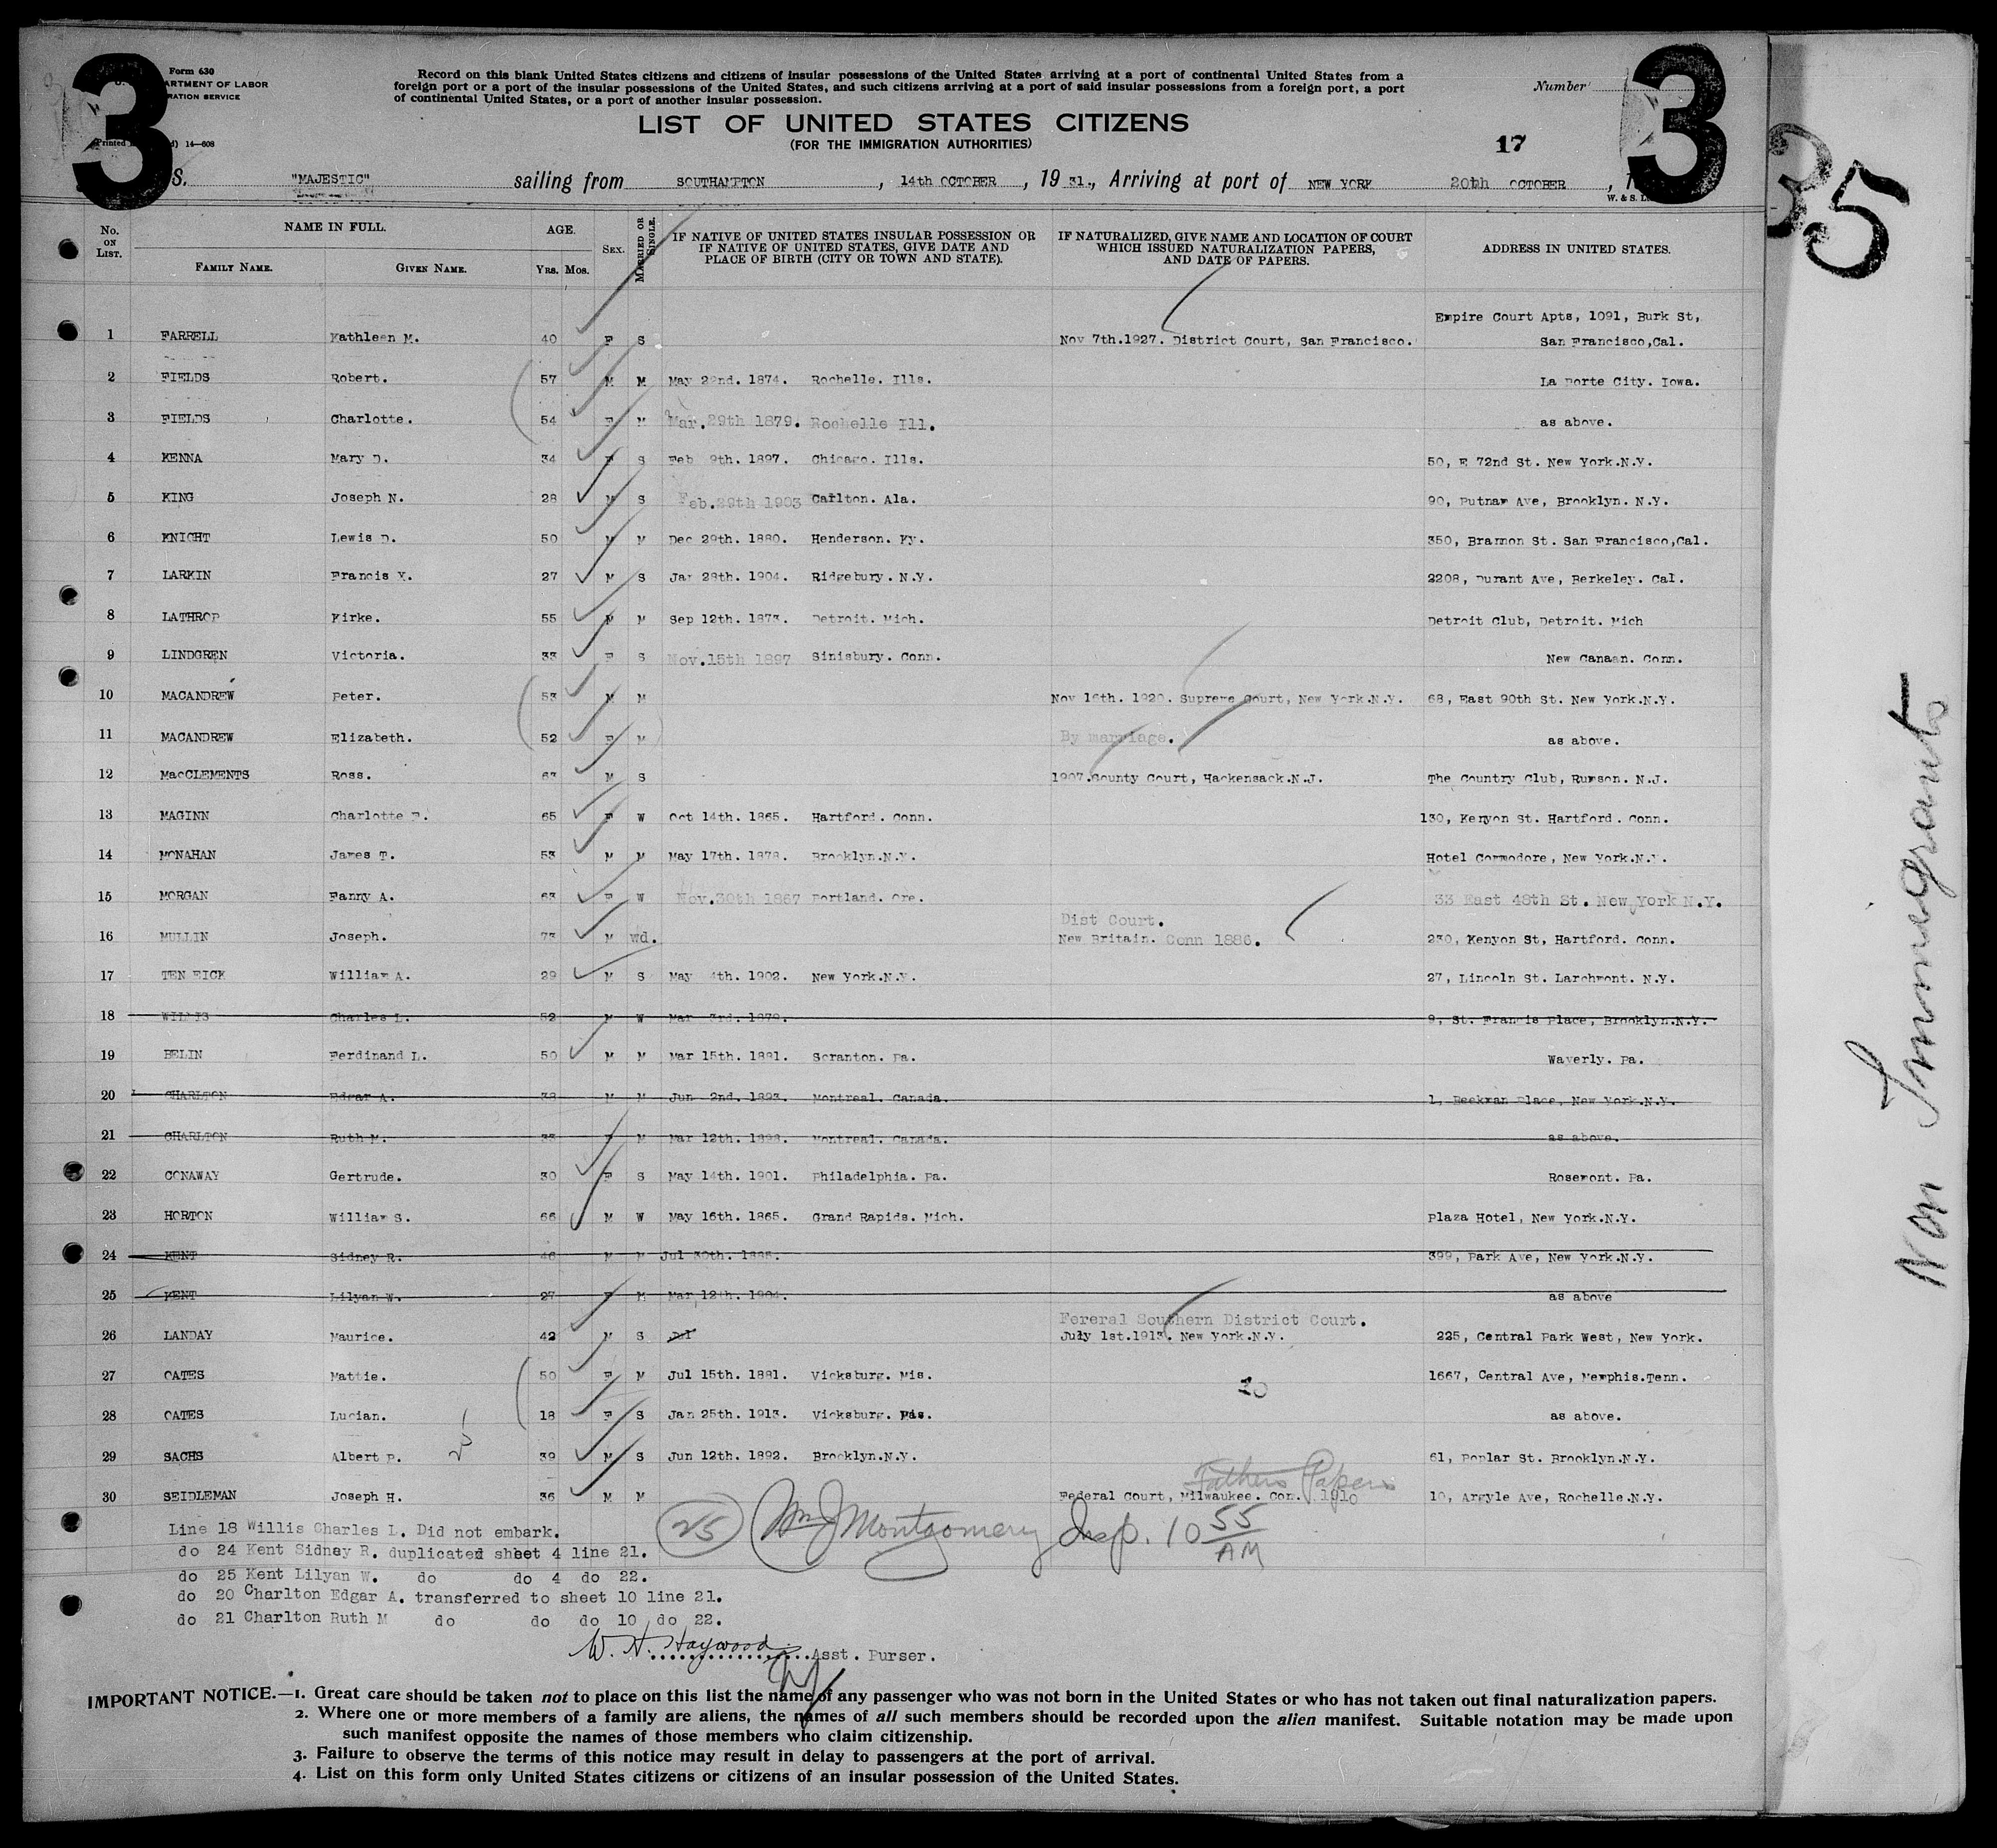 3
Form 630
ARTMENT OF LABOR
RATION SERVICE
14—608
Record on this blank United States citizens and citizens of insular possessions of the United States arriving at a port of continental United States from a
foreign port or a port of the insular possessions of the United States, and such citizens arriving at a port of said insular possessions from a foreign port, a port
of continental United States, or a port of another insular possession.
LIST OF UNITED STATES CITIZENS
(FOR THE IMMIGRATION AUTHORITIES)
Number
17
3
35
S. "MAJESTIC" sailing from SOUTHAMPTON, 14th OCTOBER, 19 31., Arriving at port of NEW YORK 20th OCTOBER, 1
W. & S. L
No. ON LIST. NAME IN FULL. AGE. SEX. MARRIED OR SINGLE. IF NATIVE OF UNITED STATES INSULAR POSSESSION OR IF NATIVE OF UNITED STATES, GIVE DATE AND PLACE OF BIRTH (CITY OR TOWN AND STATE). IF NATURALIZED, GIVE NAME AND LOCATION OF COURT WHICH ISSUED NATURALIZATION PAPERS, AND DATE OF PAPERS. ADDRESS IN UNITED STATES.
FAMILY NAME. GIVEN NAME. YRS. MOS.
Empire Court Apts, 1091, Burk St,
1 FARRELL Kathleen M. 40 F S Nov 7th.1927. District Court, San Francisco. San Francisco,Cal.
2 FIELDS Robert. 57 M M May 22nd. 1874. Rochelle. Ills. La Porte City. Iowa.
3 FIELDS Charlotte. 54 F M Mar.29th 1879. Rochelle Ill. as above.
4 KENNA Mary D. 34 F S Feb 9th. 1897. Chicago. Ills. 50, E 72nd St. New York.N.Y.
5 KING Joseph N. 28 M S Feb.29th 1903 Carlton. Ala. 90, Putnam Ave, Brooklyn. N.Y.
6 KNIGHT Lewis D. 50 M M Dec 29th. 1880. Henderson. Ky. 350, Brannon St. San Francisco,Cal.
7 LARKIN Francis X. 27 M S Jan 28th. 1904. Ridgebury. N.Y. 2208, Durant Ave, Berkeley. Cal.
8 LATHROP Kirke. 55 M M Sep 12th. 1873. Detroit. Mich. Detroit Club, Detroit. Mich
9 LINDGREN Victoria. 33 F S Nov.15th 1897 Sinisbury. Conn. New Canaan. Conn.
10 MACANDREW Peter. 53 M M Nov 16th. 1920. Supreme Court, New York.N.Y. 68, East 90th St. New York.N.Y.
11 MACANDREW Elizabeth. 52 F M By marriage. as above.
12 MacCLEMENTS Ross. 63 M S 1907.County Court, Hackensack.N.J. The Country Club, Rumson. N.J.
13 MAGINN Charlotte F. 65 F W Oct 14th. 1865. Hartford. Conn. 130, Kenyon St. Hartford. Conn.
14 MONAHAN James T. 53 M M May 17th. 1878. Brooklyn.N.Y. Hotel Commodore, New York.N.Y.
15 MORGAN Fanny A. 63 F W Nov.30th 1867 Portland. Ore. 33 East 48th St. New York N.Y.
Dist Court.
16 MULLIN Joseph. 73 M wd. New Britain. Conn 1886. 230, Kenyon St, Hartford. Conn.
17 TEN EICK William A. 29 M S May 4th. 1902. New York.N.Y. 27, Lincoln St. Larchmont. N.Y.
18 WILLIS Charles L. 52 M W Mar 3rd. 1879. 9, St. Francis Place, Brooklyn.N.Y.
19 BELIN Ferdinand L. 50 M M Mar 15th. 1881. Scranton. Pa. Waverly. Pa.
20 CHARLTON Edgar A. 38 M M Jun 2nd. 1893. Montreal. Canada. 1, Beekman Place, New York.N.Y.
21 CHARLTON Ruth M. 33 F M Mar 12th. 1898. Montreal. Canada. as above.
22 CONAWAY Gertrude. 30 F S May 14th. 1901. Philadelphia. Pa. Rosemont. Pa.
23 HORTON William S. 66 M W May 16th. 1865. Grand Rapids. Mich. Plaza Hotel, New York.N.Y.
24 KENT Sidney R. 46 M M Jul 30th. 1885. 399, Park Ave, New York.N.Y.
25 KENT Lilyan W. 27 F M Mar 12th. 1904. as above
Fereral Southern District Court.
26 LANDAY Maurice. 42 M S July 1st.1913. New York.N.Y. 225, Central Park West, New York.
27 OATES Mattie. 50 F M Jul 15th. 1881. Vicksburg. Mis. 1667, Central Ave, Memphis.Tenn.
20
28 OATES Lucian. 18 F S Jan 25th. 1913. Vicksburg. Mis. as above.
29 SACHS Albert P. 39 M S Jun 12th. 1892. Brooklyn.N.Y. 61, Poplar St. Brooklyn.N.Y.
Fathers Papers
30 SEIDLEMAN Joseph H. 36 M M Federal Court, Milwaukee. Con. 1910 10, Argyle Ave, Rochelle.N.Y.
Line 18 Willis Charles L. Did not embark.
25 Wm J Montgomery Insp. 10 55 AM
do 24 Kent Sidney R. duplicated sheet 4 line 21.
do 25 Kent Lilyan W. do do 4 do 22.
do 20 Charlton Edgar A. transferred to sheet 10 line 21.
do 21 Charlton Ruth M do do do 10 do 22.
W. H. Haywood Asst. Purser.
IMPORTANT NOTICE.—1. Great care should be taken not to place on this list the name of any passenger who was not born in the United States or who has not taken out final naturalization papers.
2. Where one or more members of a family are aliens, the names of all such members should be recorded upon the alien manifest. Suitable notation may be made upon
such manifest opposite the names of those members who claim citizenship.
3. Failure to observe the terms of this notice may result in delay to passengers at the port of arrival.
4. List on this form only United States citizens or citizens of an insular possession of the United States.
Non Immigrants